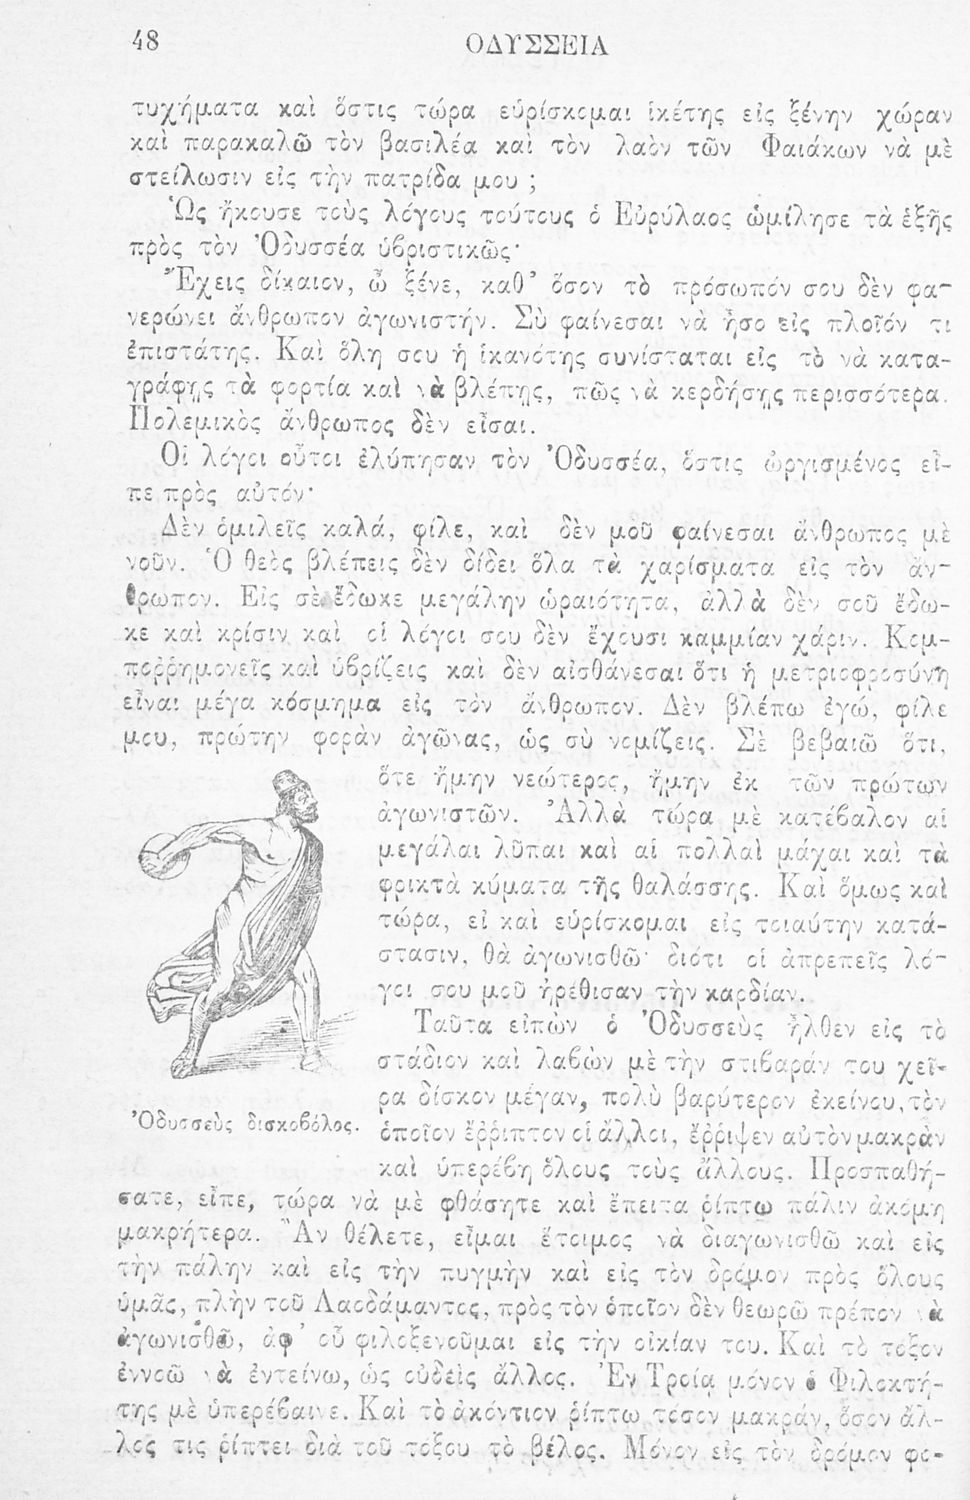 48
ΟΔΥΣΣΕΙΑ
τυχήματα καὶ ὅστις τώρα εὑρίσκομαι ἱκέτης εἰς ξένην χώραν
καὶ παρακαλῶ τὸν βασιλέα καὶ τὸν λαὸν τῶν Φαιάκων νὰ μὲ
στείλωσιν εἰς τὴν πατρίδα μου ;
Ὡς ἤκουσε τοὺς λόγους τούτους ὁ Εὐρύλαος ὡμίλησε τὰ ἑξῆς
πρὸς τὸν Ὀδυσσέα ὑβριστικῶς·
Ἔχεις δίκαιον, ὦ ξένε, καθ’ ὅσον τὸ πρόσωπόν σου δὲν φα-
νερώνει ἄνθρωπον ἀγωνιστήν. Σὺ φαίνεσαι νὰ ἦσο εἰς πλοῖόν τι
ἐπιστάτης. Καὶ ὅλη σου ἡ ἱκανότης συνίσταται εἰς τὸ νὰ κατα-
γράφῃς τὰ φορτία καὶ νὰ βλέπῃς, πῶς νὰ κερδήσῃς περισσότερα.
Πολεμικὸς ἄνθρωπος δὲν εἶσαι.
Οἱ λόγοι οὗτοι ἐλύπησαν τὸν Ὀδυσσέα, ὅστις ὠργισμένος εἶ-
πε πρὸς αὐτόν·
Δὲν ὁμιλεῖς καλά, φίλε, καὶ δὲν μοῦ φαίνεσαι ἄνθρωπος μὲ
νοῦν. Ὁ θεὸς βλέπεις δὲν δίδει ὅλα τὰ χαρίσματα εἰς τὸν ἄν-
θρωπον. Εἰς σὲ ἔδωκε μεγάλην ὡραιότητα, ἀλλὰ δὲν σοῦ ἔδω-
κε καὶ κρίσιν καὶ οἱ λόγοι σου δὲν ἔχουσι καμμίαν χάριν. Κομ-
πορρημονεῖς καὶ ὑβρίζεις καὶ δὲν αἰσθάνεσαι ὅτι ἡ μετριοφροσύνη
εἶναι μέγα κόσμημα εἰς τὸν ἄνθρωπον. Δὲν βλέπω ἐγώ, φίλε
μου, πρώτην φορὰν ἀγῶνας, ὡς σὺ νομίζεις. Σὲ βεβαιῶ ὅτι,
ὅτε ἤμην νεώτερος, ἤμην ἐκ τῶν πρώτων
ἀγωνιστῶν. Ἀλλὰ τώρα μὲ κατέβαλον αἱ
μεγάλαι λῦπαι καὶ αἱ πολλαὶ μάχαι καὶ τὰ
φρικτὰ κύματα τῆς θαλάσσης. Καὶ ὅμως καὶ
τώρα, εἰ καὶ εὑρίσκομαι εἰς τοιαύτην κατά-
στασιν, θὰ ἀγωνισθῶ· διότι οἱ ἀπρεπεῖς λό-
γοι σου μοῦ ἠρέθισαν τὴν καρδίαν.
Ταῦτα εἰπὼν ὁ Ὀδυσσεὺς ἦλθεν εἰς τὸ
στάδιον καὶ λαβὼν μὲ τὴν στιβαράν του χεῖ-
ρα δίσκον μέγαν, πολὺ βαρύτερον ἐκείνου, τὸν
ὁποῖον ἔρριπτον οἱ ἄλλοι, ἔρριψεν αὐτὸν μακρὰν
καὶ ὑπερέβη ὅλους τοὺς ἄλλους. Προσπαθή-
Ὀδυσσεὺς δισκοβόλος.
σατε, εἶπε, τώρα νὰ μὲ φθάσητε καὶ ἔπειτα ῥίπτω πάλιν ἀκόμη
μακρήτερα. Ἂν θέλετε, εἶμαι ἕτοιμος νὰ διαγωνισθῶ καὶ εἰς
τὴν πάλην καὶ εἰς τὴν πυγμὴν καὶ εἰς τὸν δρόμον πρὸς ὅλους
ὑμᾶς, πλὴν τοῦ Λαοδάμαντος, πρὸς τὸν ὁποῖον δὲν θεωρῶ πρέπον νὰ
ἀγωνισθῶ, ἀφ’ οὗ φιλοξενοῦμαι εἰς τὴν οἰκίαν του. Καὶ τὸ τόξον
ἐννοῶ νὰ ἐντείνω, ὡς οὐδεὶς ἄλλος. Ἐν Τροίᾳ μόνον ὁ Φιλοκτή-
της μὲ ὑπερέβαινε. Καὶ τὸ ἀκόντιον ῥίπτω τόσον μακράν, ὅσον ἄλ-
λος τις ῥίπτει διὰ τοῦ τόξου τὸ βέλος. Μόνον εἰς τὸν δρόμον φο-